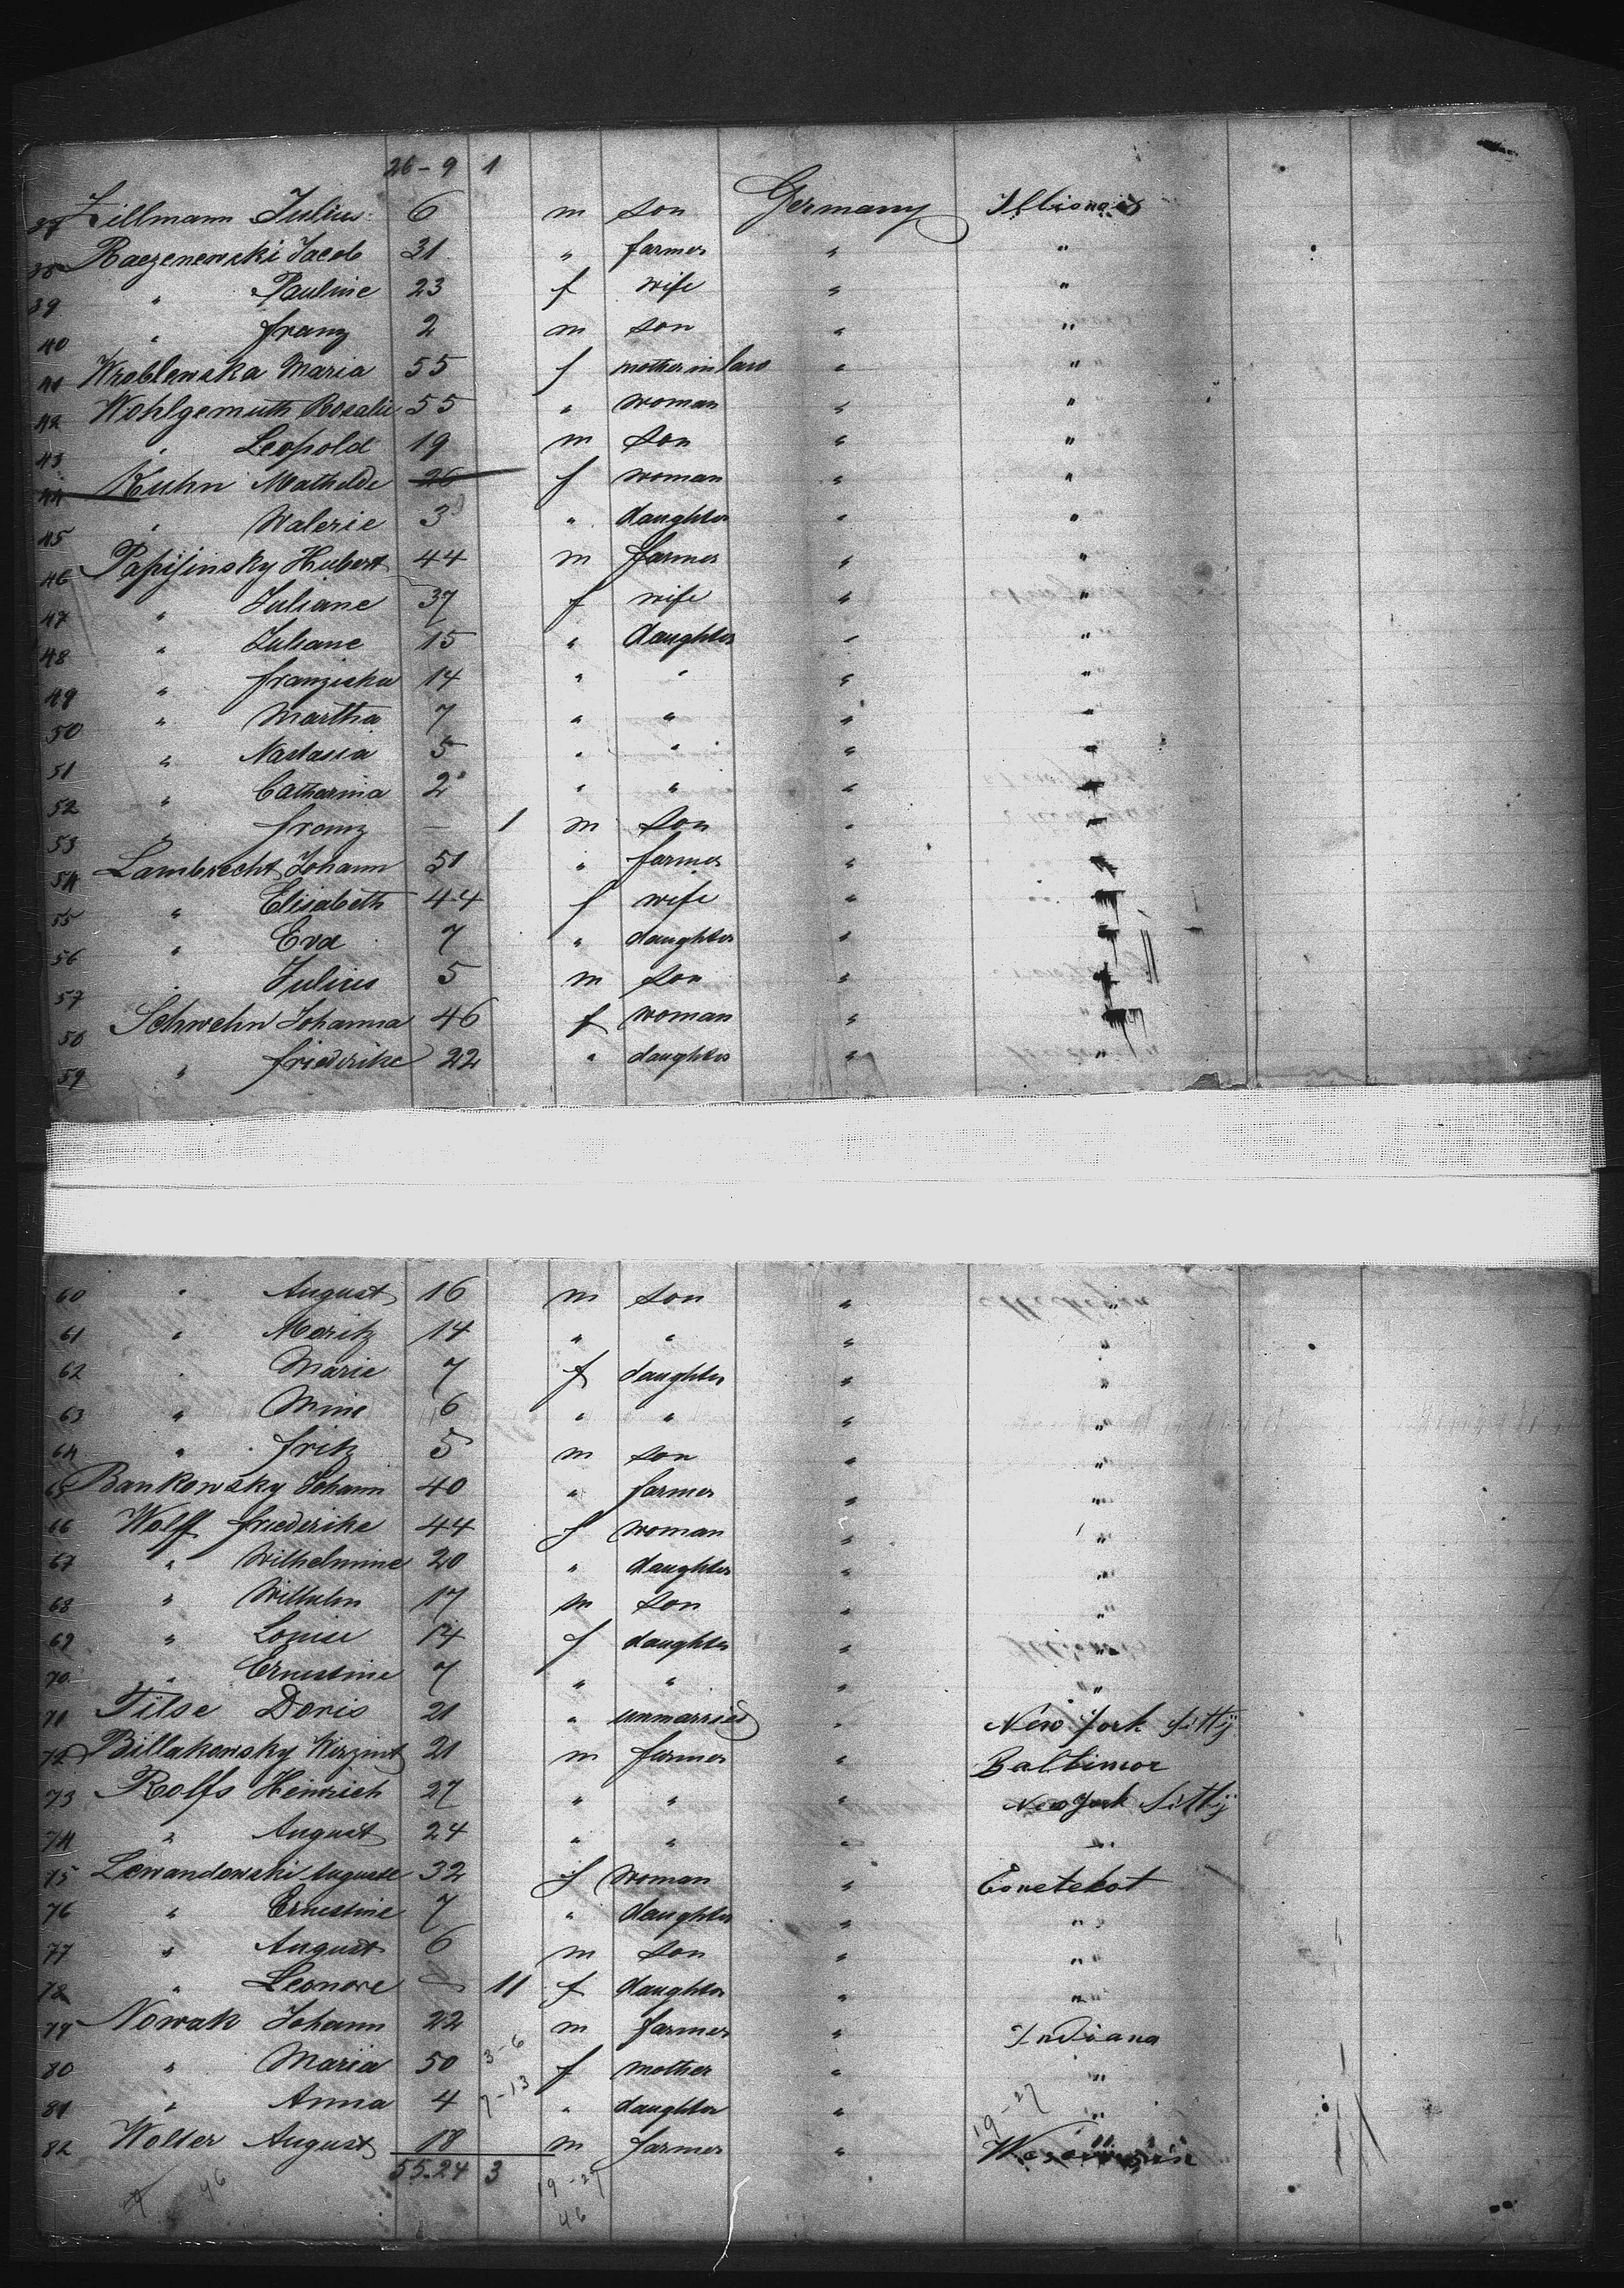 26-9 1
37 Zillmann Julius 6 m son Germany Illionois
38 Raczenewski Jacob 31 " farmer " "
39 " Pauline 23 f wife " "
40 " Franz 2 m son " "
41 Wroblewska Maria 55 f mother in law " "
42 Wohlgemuth Rosalie 55 " woman " "
43 " Leopold 19 m son " "
44 Kuhn Mathilde 26 f woman " "
45 " Walerie 3 " daughter " "
46 Papijinsky Hubert 44 m farmer " "
47 " Juliane 37 f wife " "
48 " Juliane 15 " daughter " "
49 " Franziska 14 " " " "
50 " Martha 7 " " " "
51 " Nastasia 5 " " " "
52 " Catharina 2 " " " "
53 " Franz — 1 m son " "
54 Lambrecht Johann 51 " farmer " "
55 " Elisabeth 44 f wife " "
56 " Eva 7 " daughter " "
57 " Julius 5 m son " "
58 Schwehn Johanna 46 f woman " "
59 " Friederike 22 " daughter " "
60 " August 16 m son " "
61 " Moritz 14 " " " "
62 " Marie 7 f daughter " "
63 " Mine 6 " " " "
64 " Fritz 5 m son " "
65 Bankowsky Johann 40 " farmer " "
66 Wolff Friederike 44 f woman " "
67 " Wilhelmine 20 " daughter " "
68 " Wilhelm 17 m son " "
69 " Louise 14 f daughter " "
70 " Ernestine 7 " " " "
71 Tilse Doris 21 " unmarried " New York Sittÿ
72 Billakowsky 21 m farmer " Baltimor
73 Rolfs Heinrich 27 " " " New York Sittÿ
74 " August 24 " " " "
75 Lewandowski Auguste 32 f woman " Conetekot
76 " Ernestine 7 " daughter " "
77 " August 6 m son " "
78 " Leonore — 11 f daughter " "
79 Nowak Johann 22 m farmer " Indiana
80 " Maria 50 3-6 f mother " "
81 " Anna 4 7-13 " daughter " "
19-27
82 Wolter August 18 m farmer "
55-24 3
46 19-27
46